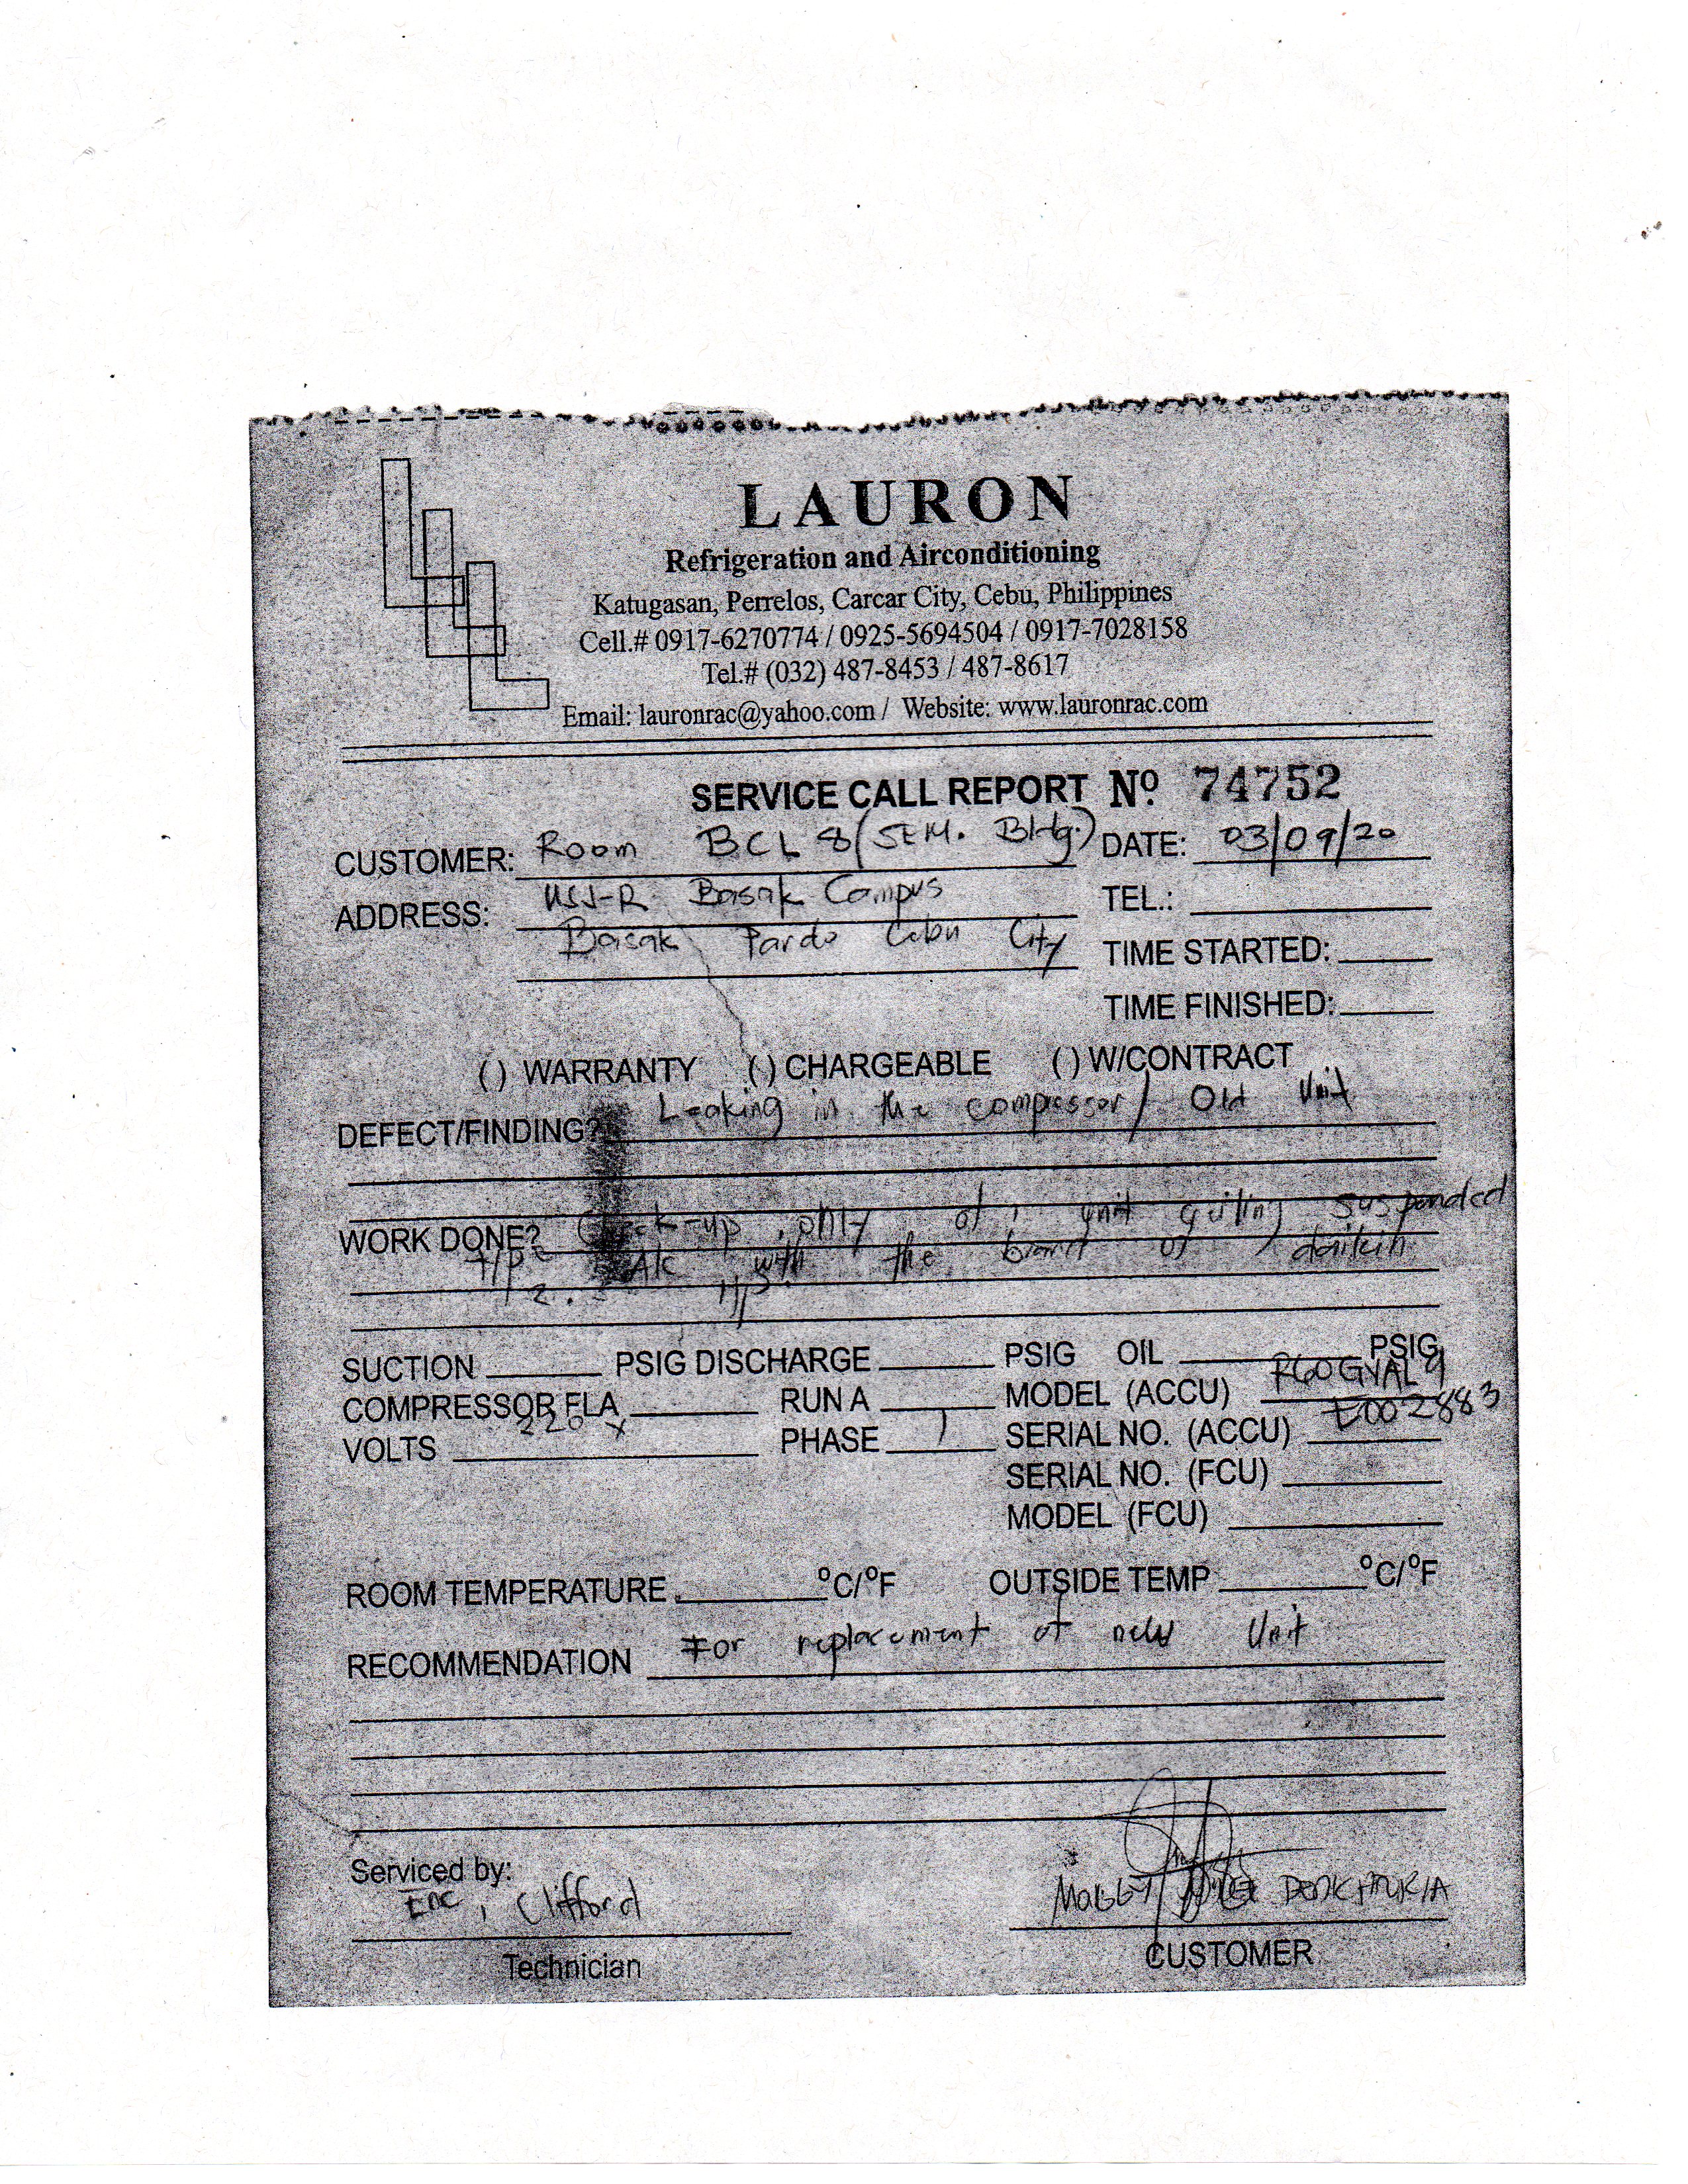 LAURON
Refrigeration and Airconditioning
Katugasan, Perrelos, Carcar City, Cebu, Philippines
Cell.# 0917-6270774 / 0925-5694504 / 0917-7028158
Tel.# (032) 487-8453 / 487-8617
Email: lauronrac@yahoo.com / Website: www.lauronrac.com
SERVICE CALL REPORT Nº 74752
CUSTOMER: Room BCL 8 (SEM. Bldg.) DATE: 03/09/20
ADDRESS: USJ-R Basak Campus TEL.:
Basak Pardo Cebu City TIME STARTED:
TIME FINISHED:
( ) WARRANTY ( ) CHARGEABLE ( ) W/CONTRACT
DEFECT/FINDING? Leaking in the compressor / Old Unit
WORK DONE? Check-up only of 1 unit suspended
type A/c with the brand of daikin
HP
SUCTION PSIG DISCHARGE PSIG OIL PSIG
COMPRESSOR FLA RUN A MODEL (ACCU)
VOLTS 220 PHASE 1 SERIAL NO. (ACCU) E002883
SERIAL NO. (FCU)
MODEL (FCU)
ROOM TEMPERATURE ºC/ºF OUTSIDE TEMP ºC/ºF
RECOMMENDATION For replacement of new Unit
Serviced by:
Eric, Clifford
Technician CUSTOMER